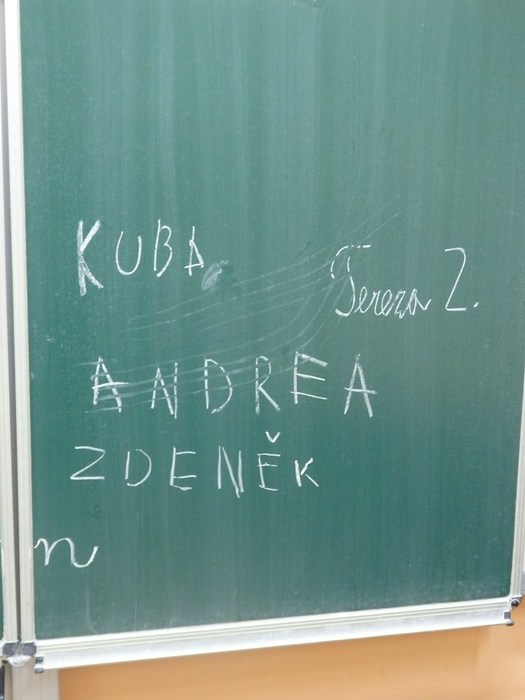 KUBA
Tereza Z.
ANDREA
ZDENĚK
n